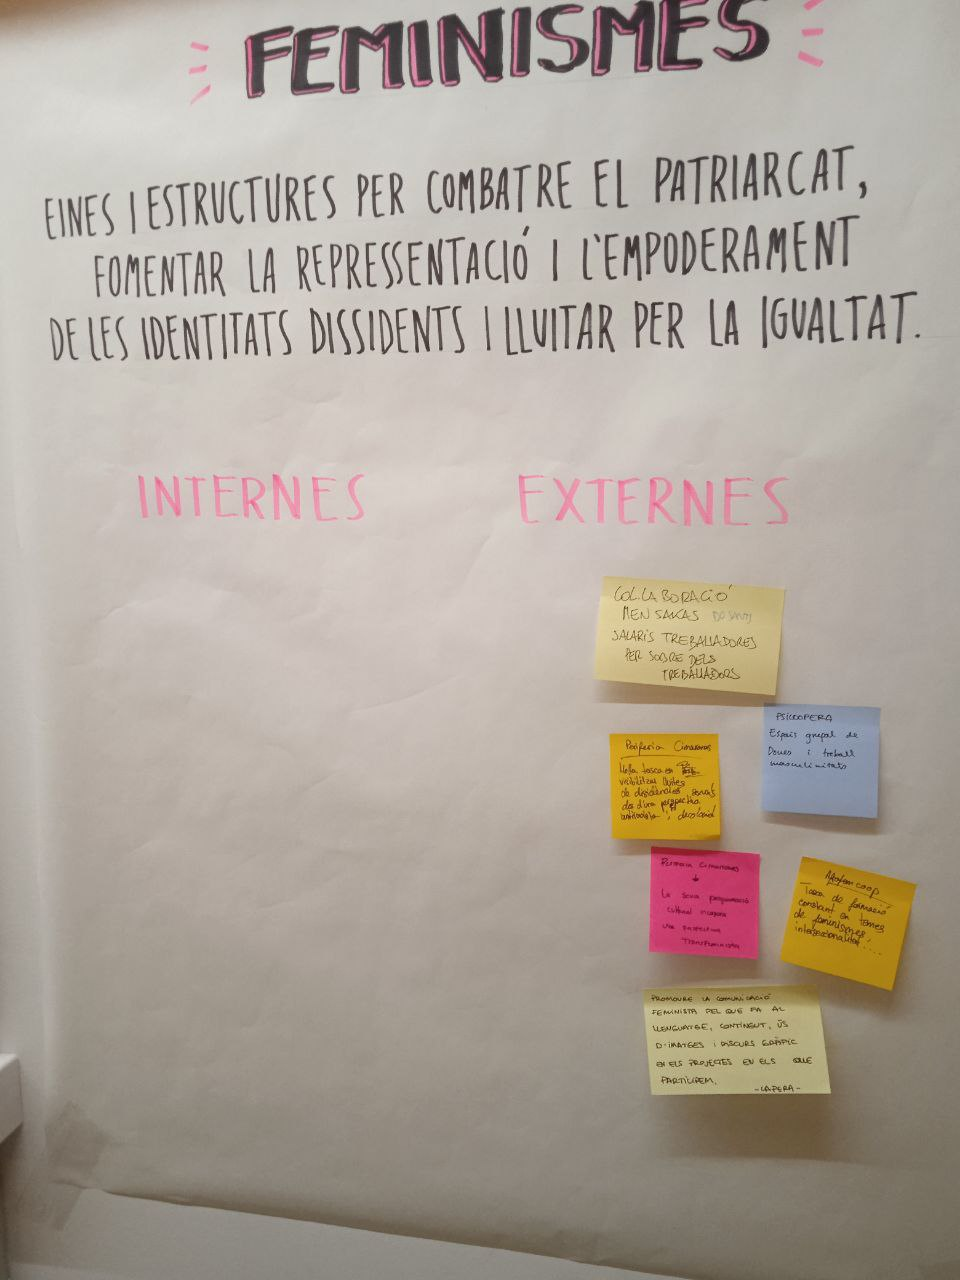 FEMINISMES
EINES I ESTRUCTURES PER COMBATRE EL PATRIARCAT,
FOMENTAR LA REPRESSENTACIÓ I L'EMPODERAMENT
DE LES IDENTITATS DISSIDENTS I LLUITAR PER LA IGUALTAT.
INTERNES
EXTERNES
COL·LABORACIÓ
MENSAKAS
SALARIS TREBALLADORES
PER SOBRE DELS
TREBALLADORS
PSICOOPERA
Espais grupal de
Dones i treball
masculinitats
Periferia Cimarronas
tasca en
visibilitzar
de dissidències sexuals
des d'una perspectiva
antiracista i decolonial
Periferia Cimarronas
La seva programació
cultural incorpora
una perspectiva
TRANSFEMINISTA
coop
Tasca de formació
constant en temes
de feminismes
interseccionalitat ....
PROMOURE LA COMUNICACIÓ
FEMINISTA PEL QUE FA AL
LLENGUATGE, CONTINGUT, ÚS
D'IMATGES I DISCURS GRÀFIC
EN ELS PROJECTES EN ELS QUE
PARTICIPEM.
-LAPERA-